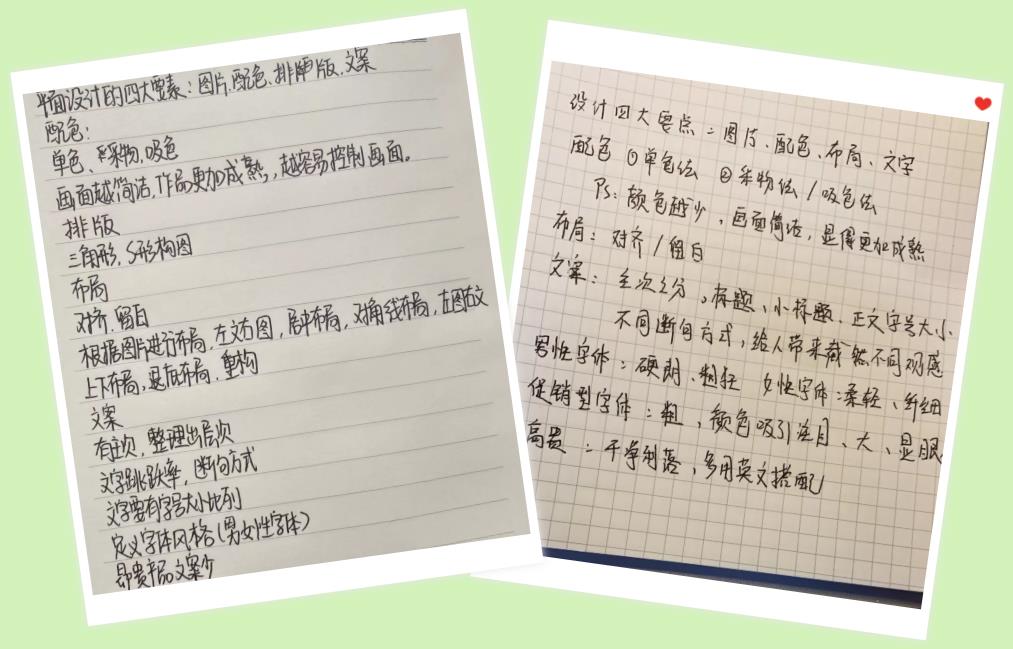 平面设计的四大要素：图片、配色、排版、文案
配色：
单色、采物，吸色
画面越简洁，作品更加成熟，越容易控制画面。
排版
三角形，S形构图
布局
对齐、留白
根据图片进行布局，左文右图，居中布局，对角线布局，左图右文
上下布局，悬底布局，重构
文案
有主次，整理出层次
文字跳跃率，断句方式
文字要有字号大小比列
定义字体风格（男女性字体）
昂贵产品文案少
设计四大要点：图片、配色、布局、文字
配色 ①单色法 ②采物法/吸色法
Ps：颜色越少，画面简洁，显得更加成熟
布局：对齐/留白
文案：主次之分，标题、小标题、正文字号大小
不同断句方式，给人带来截然不同观感
男性字体：硬朗、粗狂 女性字体：柔轻、纤细
促销型字体：粗、颜色吸引注目、大、显眼
高贵：干净利落、多用英文搭配